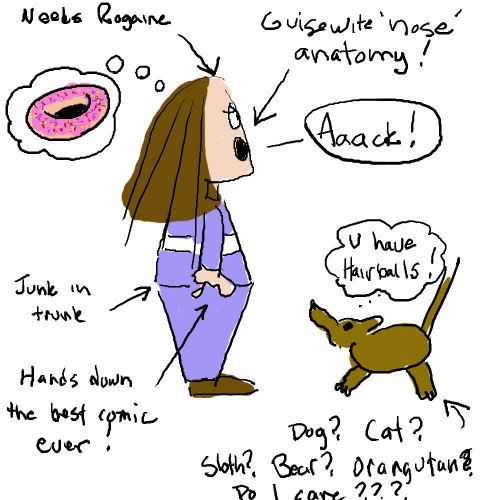 Needs Rogaine
Guisewite 'nose'
anatomy!
Aaack!
U have
Hairballs!
Junk in
trunk
Hands down
the best comic
ever!
Dog? Cat?
Sloth? Bear? Orangutan?
Do I care???